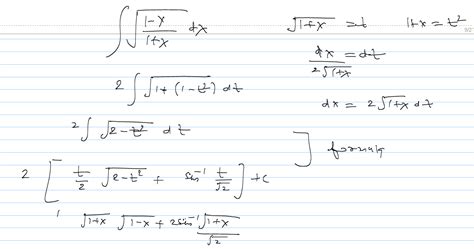 ∫ √((1-x)/(1+x)) dx
√(1+x) = t    1+x = t²
dx/(2√(1+x)) = dt
2 ∫ √(1+(1-t²)) dt
dx = 2√(1+x) dt
2 ∫ √(2-t²) dt
] formula
2 [ t/2 √(2-t²) + sin⁻¹ t/√2 ] + c
√(1+x) √(1-x) + 2 sin⁻¹ √(1+x)/√2